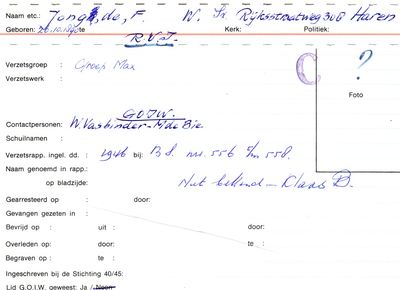 Naam etc.: Jong, de, F. W. Rijksstraatweg 306 Haren
Geboren: 20.10.18 te Kerk: Politiek:
R.V.V.
Verzetsgroep : Groep Max
Verzetswerk :
C
?
Foto
G.O.I.W.
Contactpersonen: W. Vasbinder - M. de Bie
Schuilnamen :
Verzetsrapp. ingel. dd. : 1946 bij: B.S. nrs. 556 t/m 558.
Naam genoemd in rapp.:
op bladzijde: Niet bekend - Klaas B.
Gearresteerd op : door:
Gevangen gezeten in :
Bevrijd op : uit : door:
Overleden op: door: te :
Begraven op : te :
Ingeschreven bij de Stichting 40/45:
Lid G.O.I.W. geweest: Ja / Neen